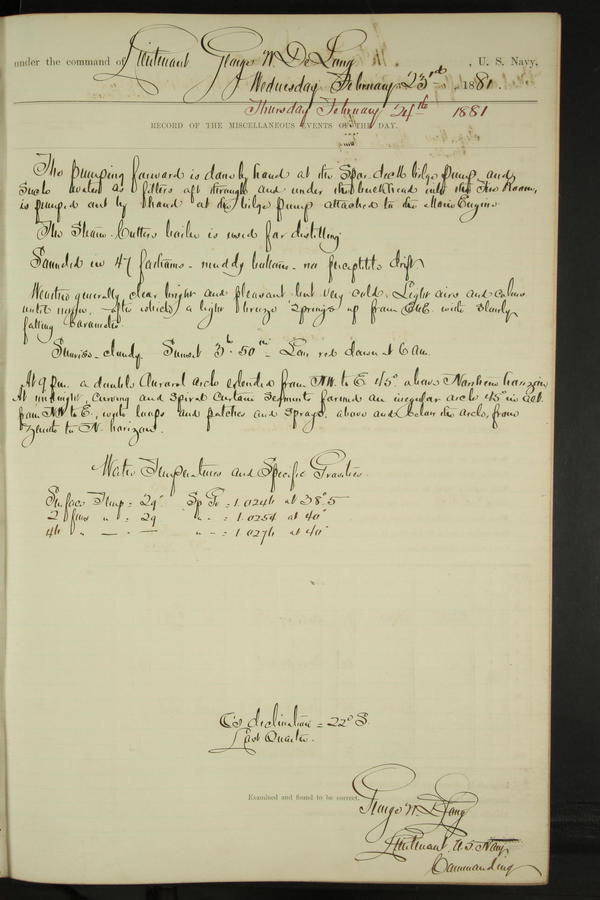 under the command of Lieutenant George W. De Long, U. S. Navy,
Wednesday February 23rd, 1881.
Thursday February 24th 1881
RECORD OF THE MISCELLANEOUS EVENTS OF THE DAY.
The pumping forward is done by hand at the Spar deck bilge pump, and
such water as filters aft through and under the bulkhead into the Fire Room,
is pumped out by hand at the bilge pump attached to the Main Engine
The Steam Cutters boiler is used for distilling.
Sounded in 47 fathoms - muddy bottom - no perceptible drift
Weather generally clear, bright and pleasant but very cold. Light airs and calms
until noon, after which a light breeze springs up from with slowly
falling barometer.
Sunrise - cloudy. Sunset 3h. 50m - Lon red dawn at 6 am.
At 9 p.m. a double Auroral arch extended from NW. to E. 45° above Northern horizon
At midnight, curving and spiral curtain segments formed an irregular arch 45° in alt.
from NW to E; with loops and patches and sprays, above and below the arch, from
Zenith to N. horizon.
Water Temperatures and Specific Gravities.
Surface Temp = 29° Sp Gr = 1.0246 at 38°.5
2 fms " = 29 " " = 1.0254 at 40°
46 " — " — " " = 1.0276 at 40°
☾'s declination = 22° S.
Last Quarter.
Examined and found to be correct.
George W. De Long
Lieutenant, U.S. Navy
Commanding